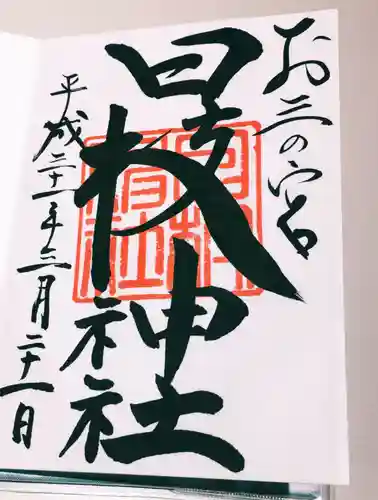 お三の宮
日枝神社
平成二十一年三月二十一日